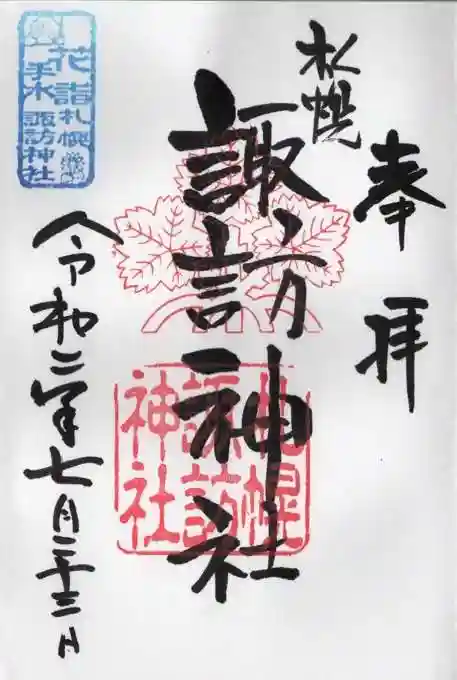 奉拝
札幌
諏訪神社
札幌
諏訪
神社
令和二年七月二十三日
花詣
札幌
手水
諏訪神社